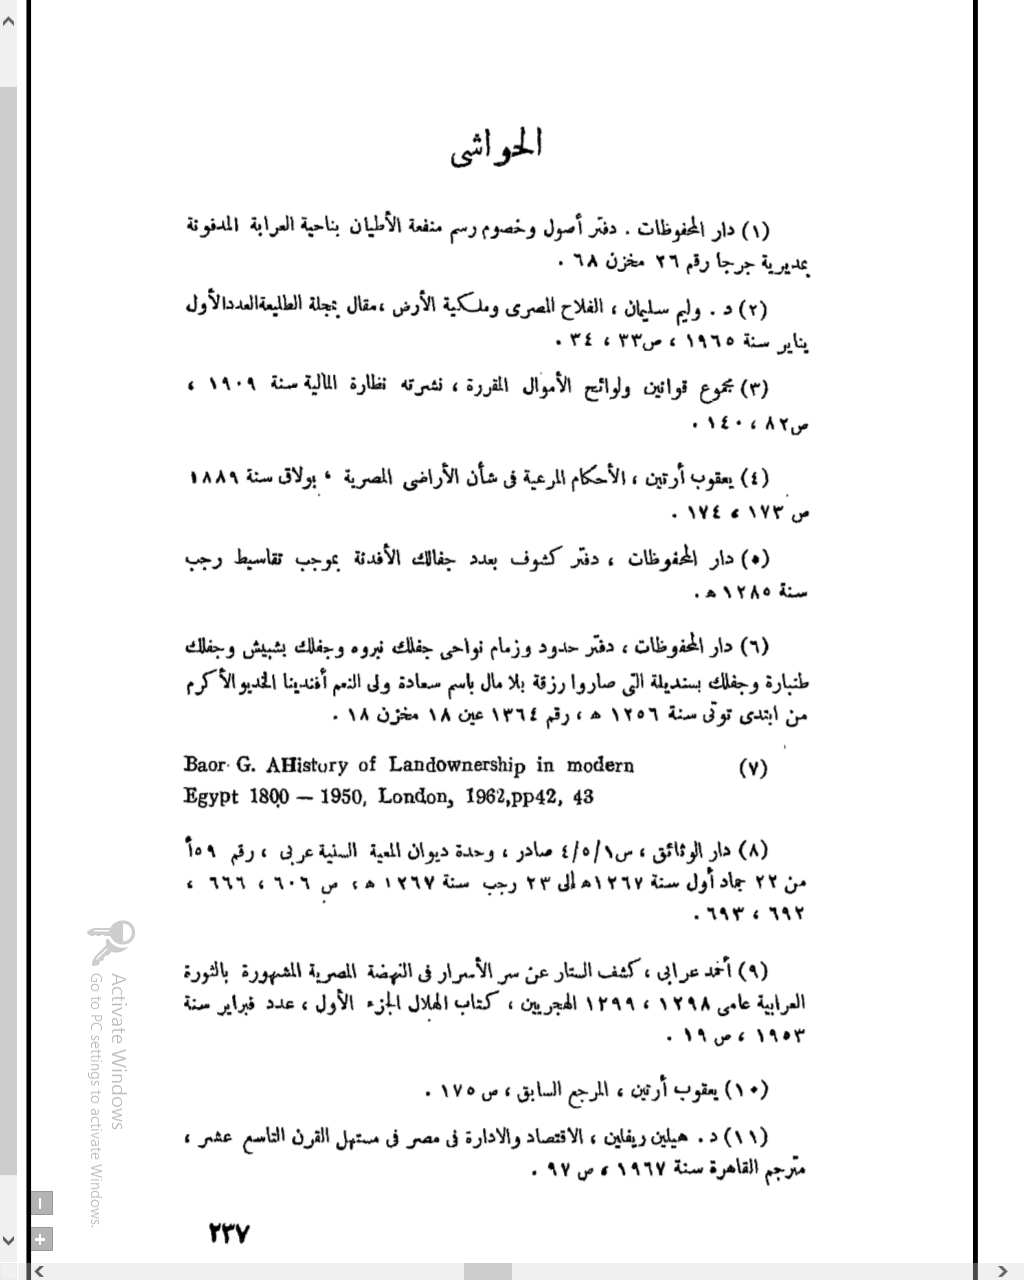 الحواشى
(١) دار المحفوظات . دفتر أصول وخصوم رسم منفعة الأطيان بناحية العرابة المدفونة
بمديرية جرجا رقم ٢٦ مخزن ٦٨ .
(٢) د . وليم سليمان ، الفلاح المصرى وملكية الأرض ،مقال بمجلة الطليعةالعددالأول
يناير سنة ١٩٦٥ ، ص٣٣ ، ٣٤ .
(٣) مجموع قوانين ولوائح الأموال المقررة ، نشرته نظارة المالية سنة ١٩٠٩ ،
ص٨٢ ، ١٤٠ .
(٤) يعقوب أرتين ، الأحكام المرعية فى شأن الأراضى المصرية ، بولاق سنة ١٨٨٩
ص ١٧٣ ، ١٧٤ .
(٥) دار المحفوظات ، دفتر كشوف بعدد جفالك الأفدنة بموجب تقاسيط رجب
سنة ١٢٨٥ ه .
(٦) دار المحفوظات ، دفتر حدود وزمام نواحى جفلك نبروه وجفلك بشبيش وجفلك
طنبارة وجفلك بسنديلة التى صاروا رزقة بلا مال باسم سعادة ولى النعم أفندينا الخديو الأكرم
من ابتدى توتى سنة ١٢٥٦ ه ، رقم ١٣٦٤ عين ١٨ مخزن ١٨ .
(٧) Baor G. AHistory of Landownership in modern
Egypt 1800 — 1950, London, 1962,pp42, 43
(٨) دار الوثائق ، س٤/٥/١ صادر ، وحدة ديوان المعية السنية عربى ، رقم ٥٩أ
من ٢٢ جماد أول سنة ١٢٦٧ه إلى ٢٣ رجب سنة ١٢٦٧ ه ، ص ٦٠٦ ، ٦٦٦ ،
٦٩٢ ، ٦٩٣ .
(٩) أحمد عرابى ، كشف الستار عن سر الأسرار فى النهضة المصرية المشهورة بالثورة
العرابية عامى ١٢٩٨ ، ١٢٩٩ الهجريين ، كتاب الهلال الجزء الأول ، عدد فبراير سنة
١٩٥٣ ، ص ١٩ .
(١٠) يعقوب أرتين ، المرجع السابق ، ص ١٧٥ .
(١١) د . هيلين ريفلين ، الاقتصاد والادارة فى مصر فى مستهل القرن التاسع عشر ،
مترجم القاهرة سنة ١٩٦٧ ، ص ٩٧ .
٢٣٧
Activate Windows
Go to PC settings to activate Windows.